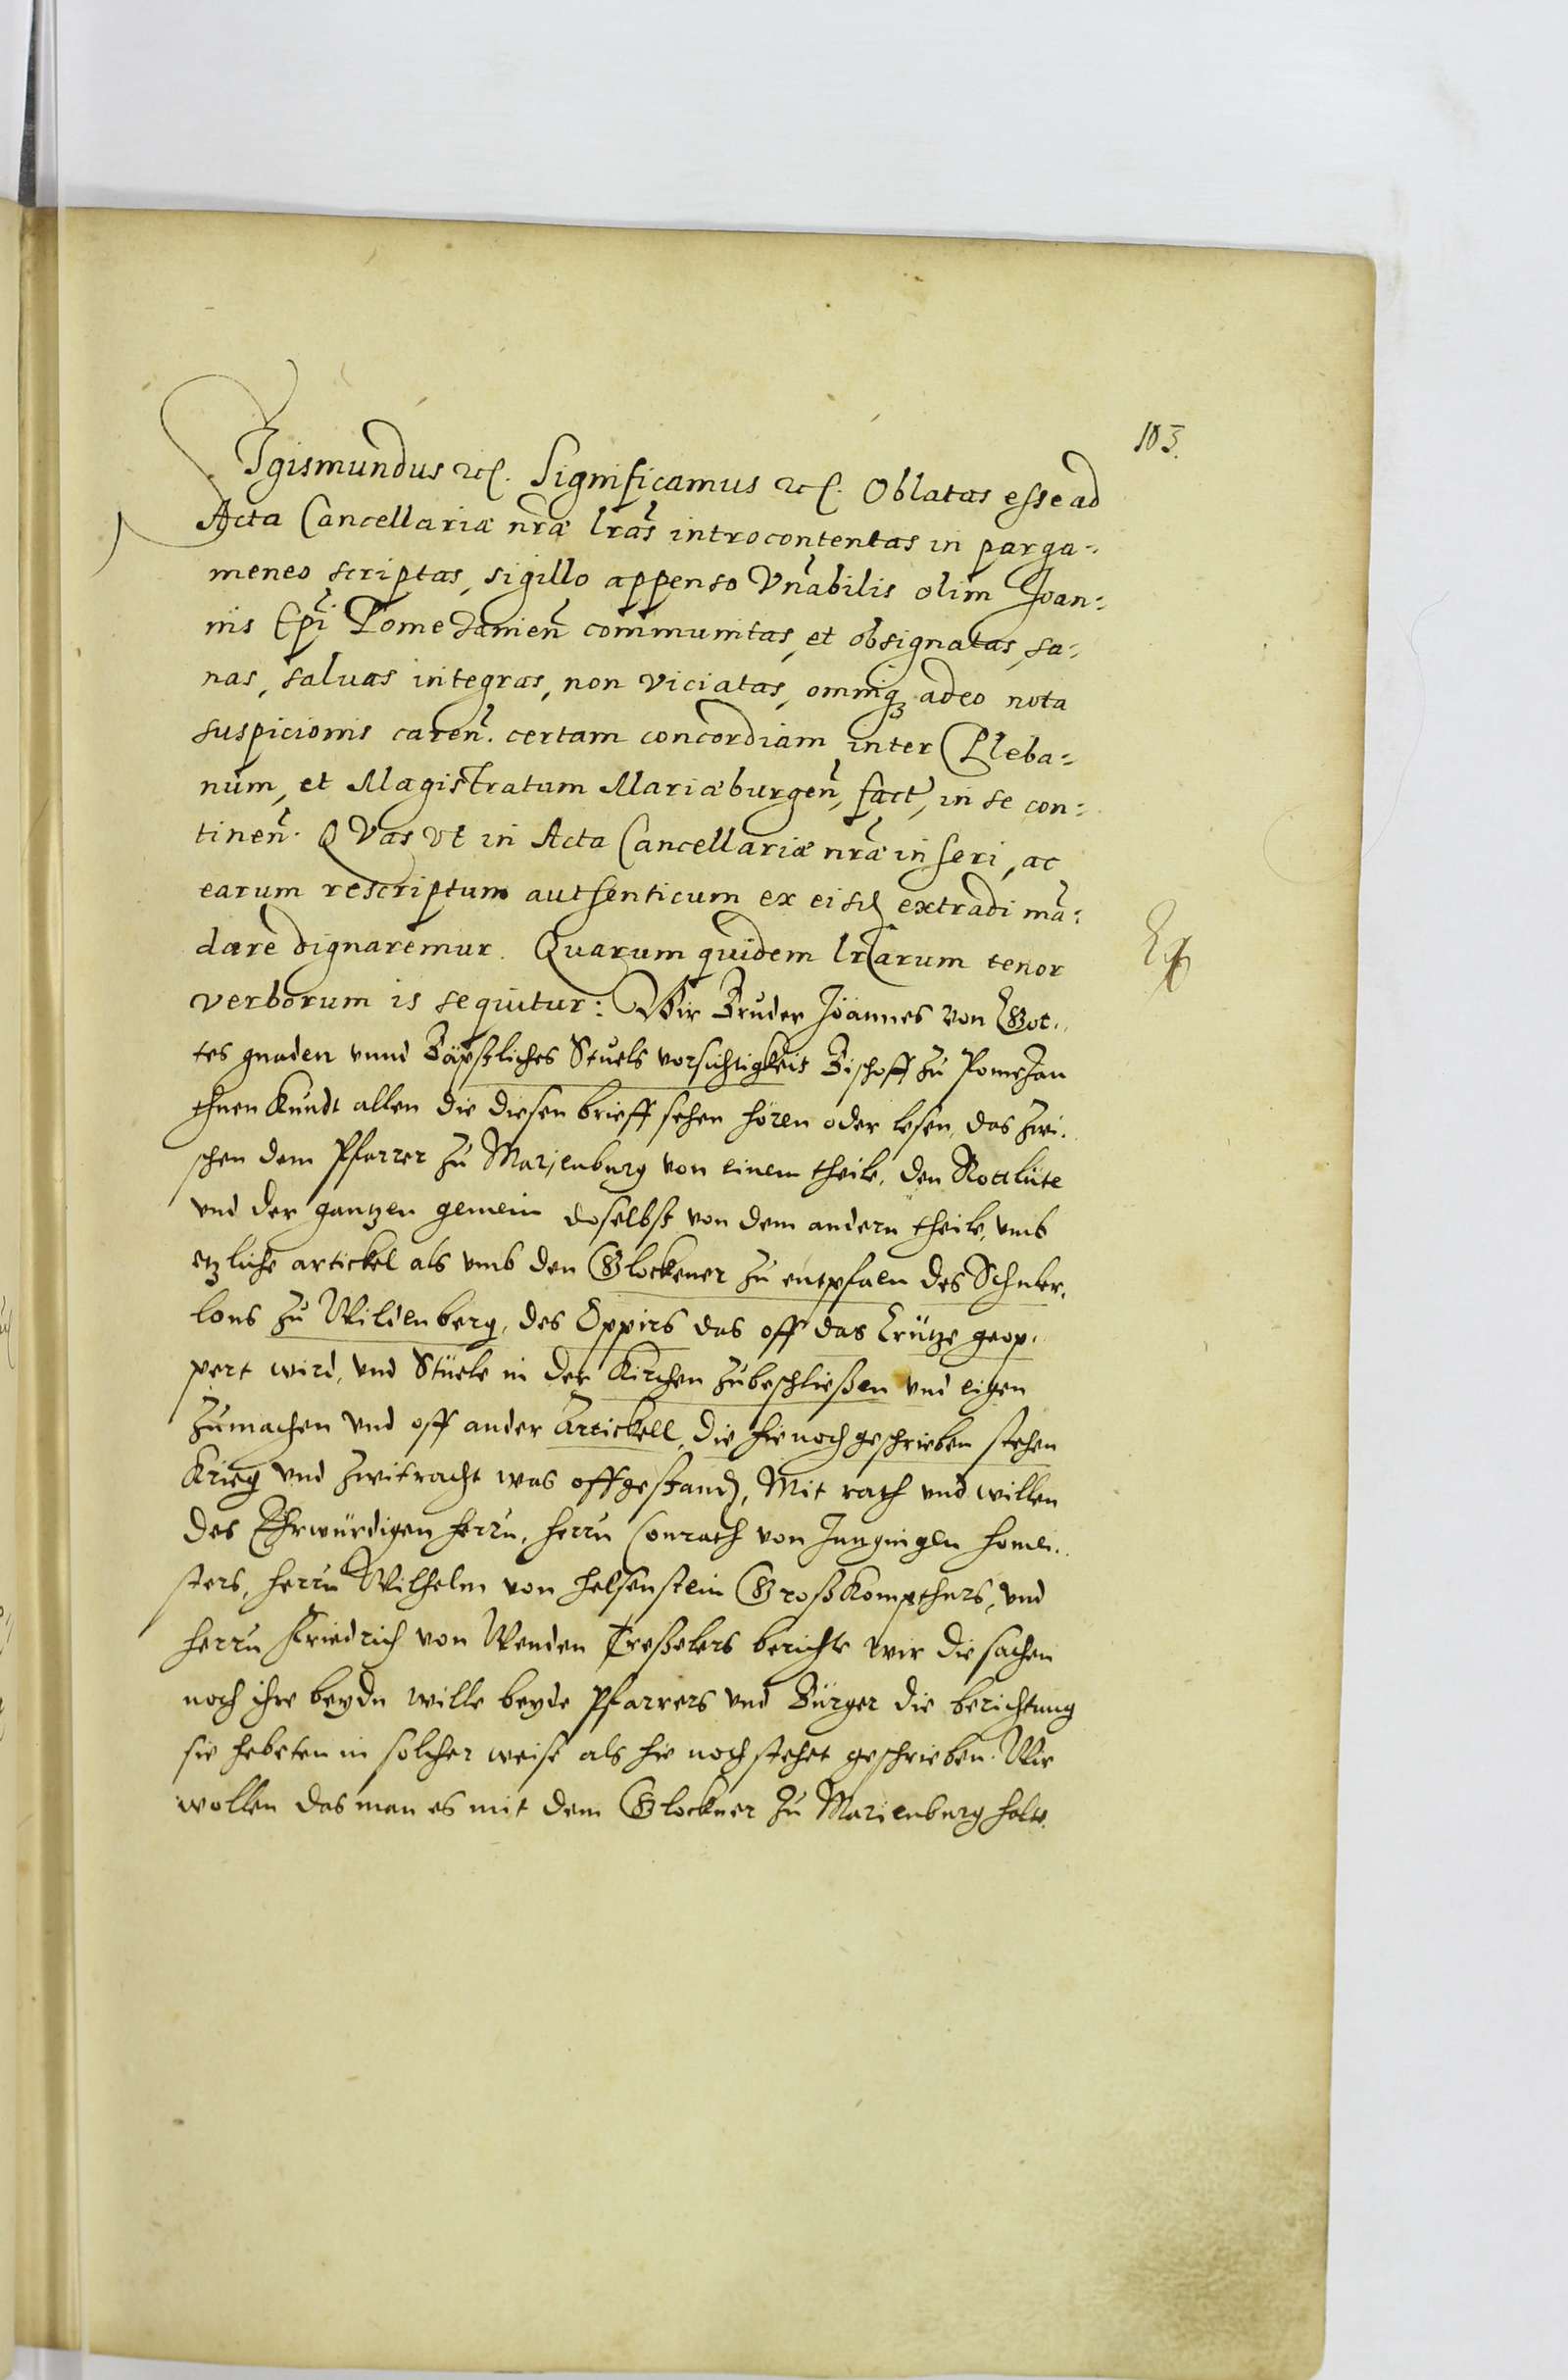 103.
Sigismundus etc. Significamus etc. Oblatas esse ad
Acta Cancellariæ nræ lras introcontentas in parga=
meneo scriptas, sigillo appenso Vnabilis olim Joan=
nis Epi Pomezanien communitas, et obsignatas, sa=
nas, saluas integras, non viciatas, omniq3 adeo nota
suspicionis caren. certam concordiam inter Pleba=
num, et Magistratum Mariæburgen, fact, in se con=
tinen. QVas vt in Acta Cancellariæ nræ inseri, ac
earum rescriptum authenticum ex eisd extradi ma=
dare dignaremur. Quarum quidem lrarum tenor
verborum is sequitur: Wir Bruder Joannes von Got=
tes gnaden vnnd Bäpstliches Stuels vorsichtigkeit Bischoff zu Pomezan
thuen Kundt allen die diesen brieff sehen hören oder lesen, das zwi=
schen dem Pfarrer zu Marienburg von einem theile, den Rottlüte
vnd der gantzen gemein doselbst von dem andern theile, vmb
etzliche artickel als vmb den Glockener zu entpfaen des Schuler=
lons zu Wildenberg, des Oppirs das off das Crütze geop=
pert wird, vnd Stüele in der Kirchen zubeschließen vnd eigen
zumachen vnd off ander Artickell, die hie noch geschrieben stehen
Krieg vnd zwitracht was offgestand, Mit rath vnd willen
des Ehrwürdigen herrn, herrn Conrath von Jungingen homei=
sters, herrn Wilhelm von helfenstein GroßKompthurs, vnd
herrn Friedrich von Wenden Treßelers berichte wir die sachen
noch ihre beydn wille beyde Pfarrers vnd Bürger die berichtung
sie hebeten in solcher weise als hie noch stehet geschrieben. Wir
wollen das man es mit dem Glockner zu Marienburg halte